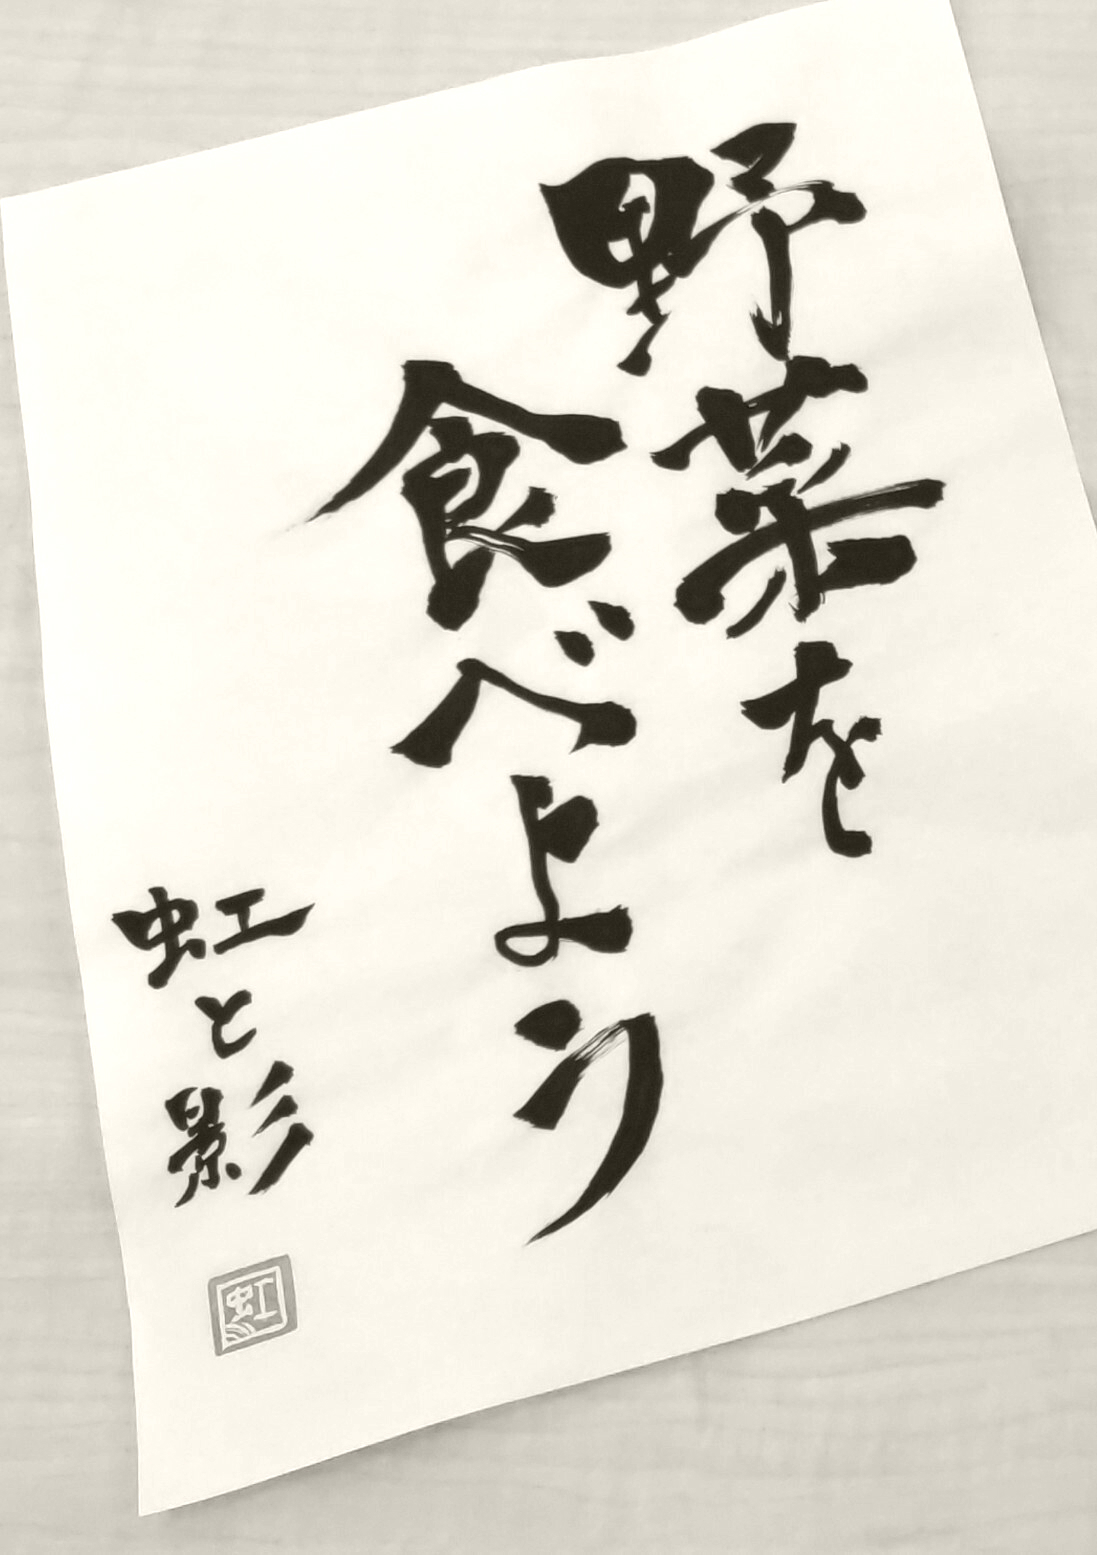 野菜を
食べよう
虹と影
虹